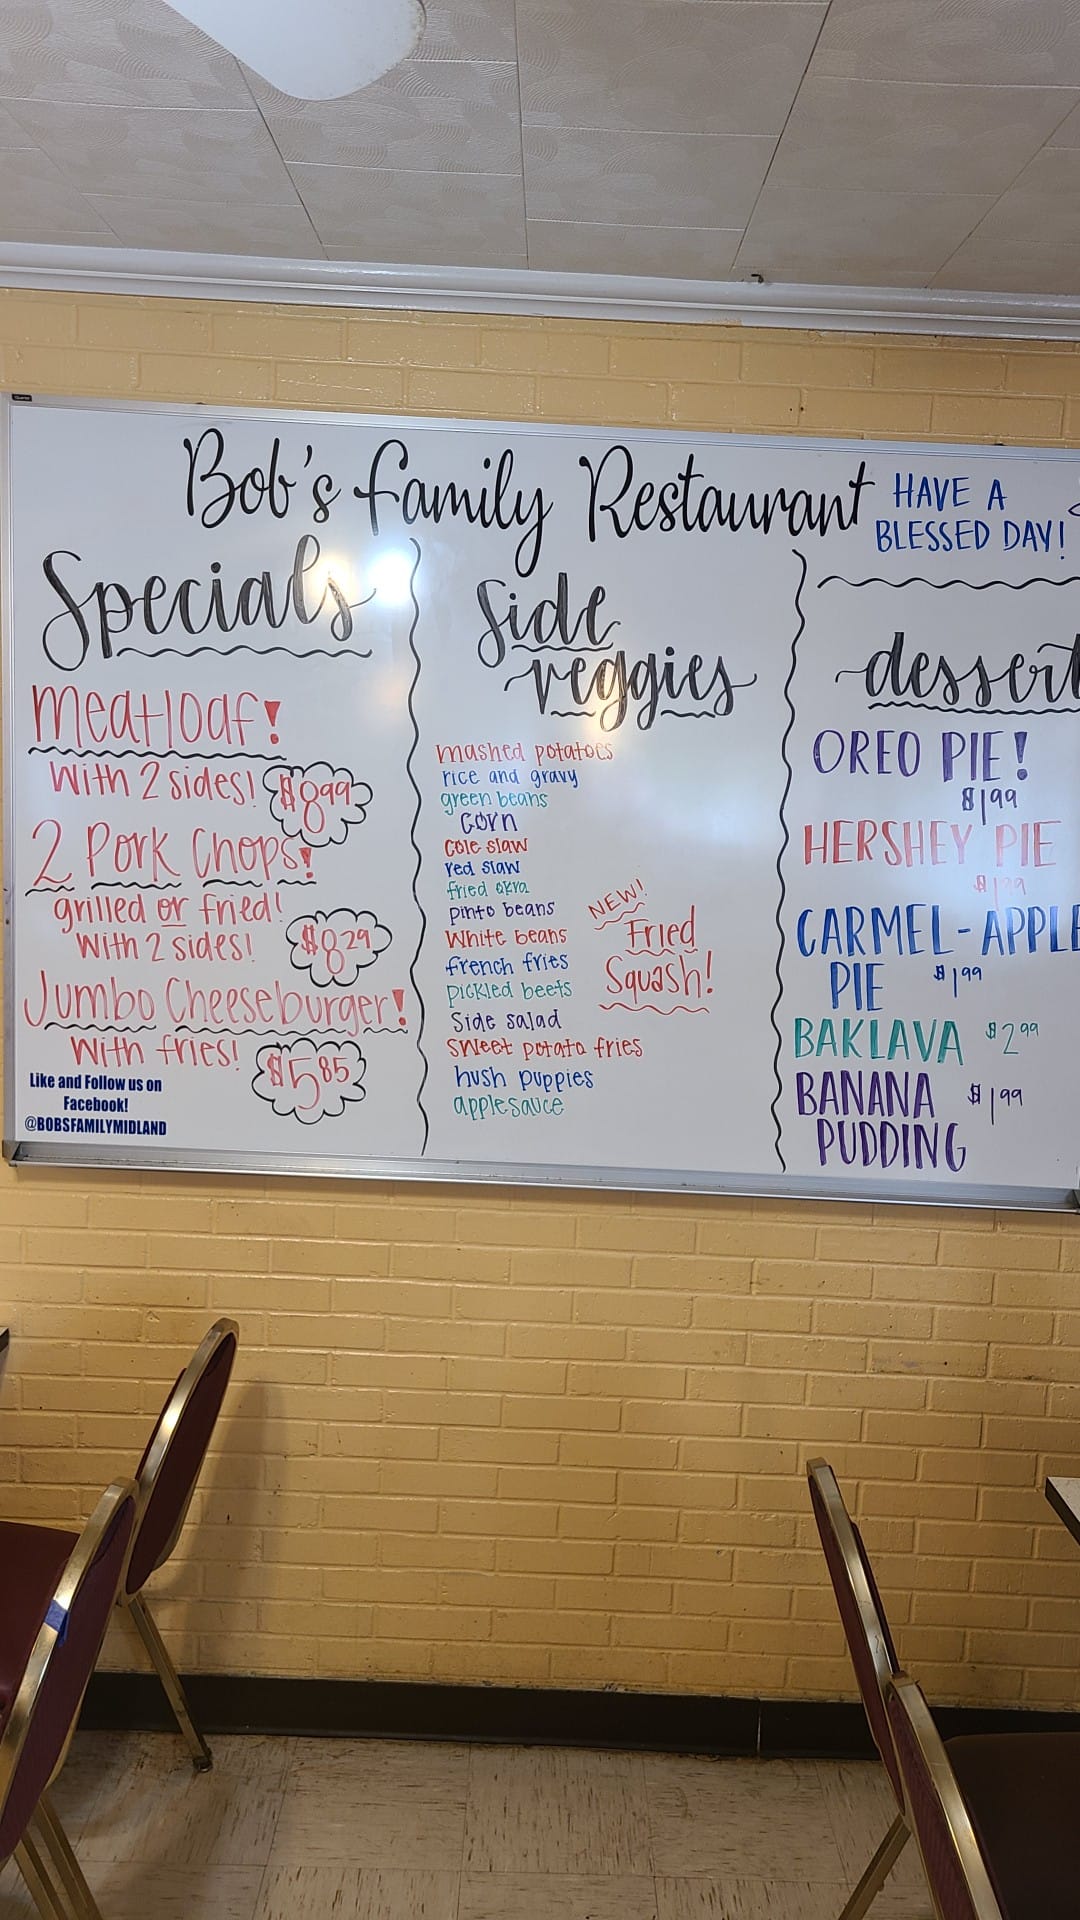 Bob's Family Restaurant
HAVE A
BLESSED DAY!
Specials
Meatloaf!
With 2 sides! $8.99
2 Pork Chops!
grilled or fried!
With 2 sides! $8.29
Jumbo Cheeseburger!
With fries! $5.85
Like and Follow us on
Facebook!
@BOBSFAMILYMIDLAND
Side
veggies
mashed potatoes
rice and gravy
green beans
Corn
Cole slaw
red slaw
fried okra
pinto beans
White beans
french fries
pickled beets
Side salad
Sweet potato fries
hush puppies
applesauce
NEW!
Fried
Squash!
dessert
OREO PIE!
$1.99
HERSHEY PIE
$1.99
CARMEL-APPLE
PIE $1.99
BAKLAVA $2.99
BANANA $1.99
PUDDING